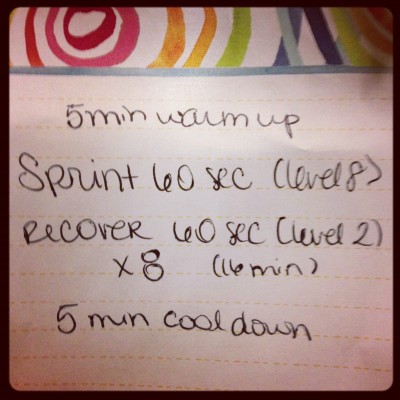 5 min warm up
Sprint 60 sec (level 8)
Recover 60 sec (level 2)
x 8 (16 min)
5 min cool down